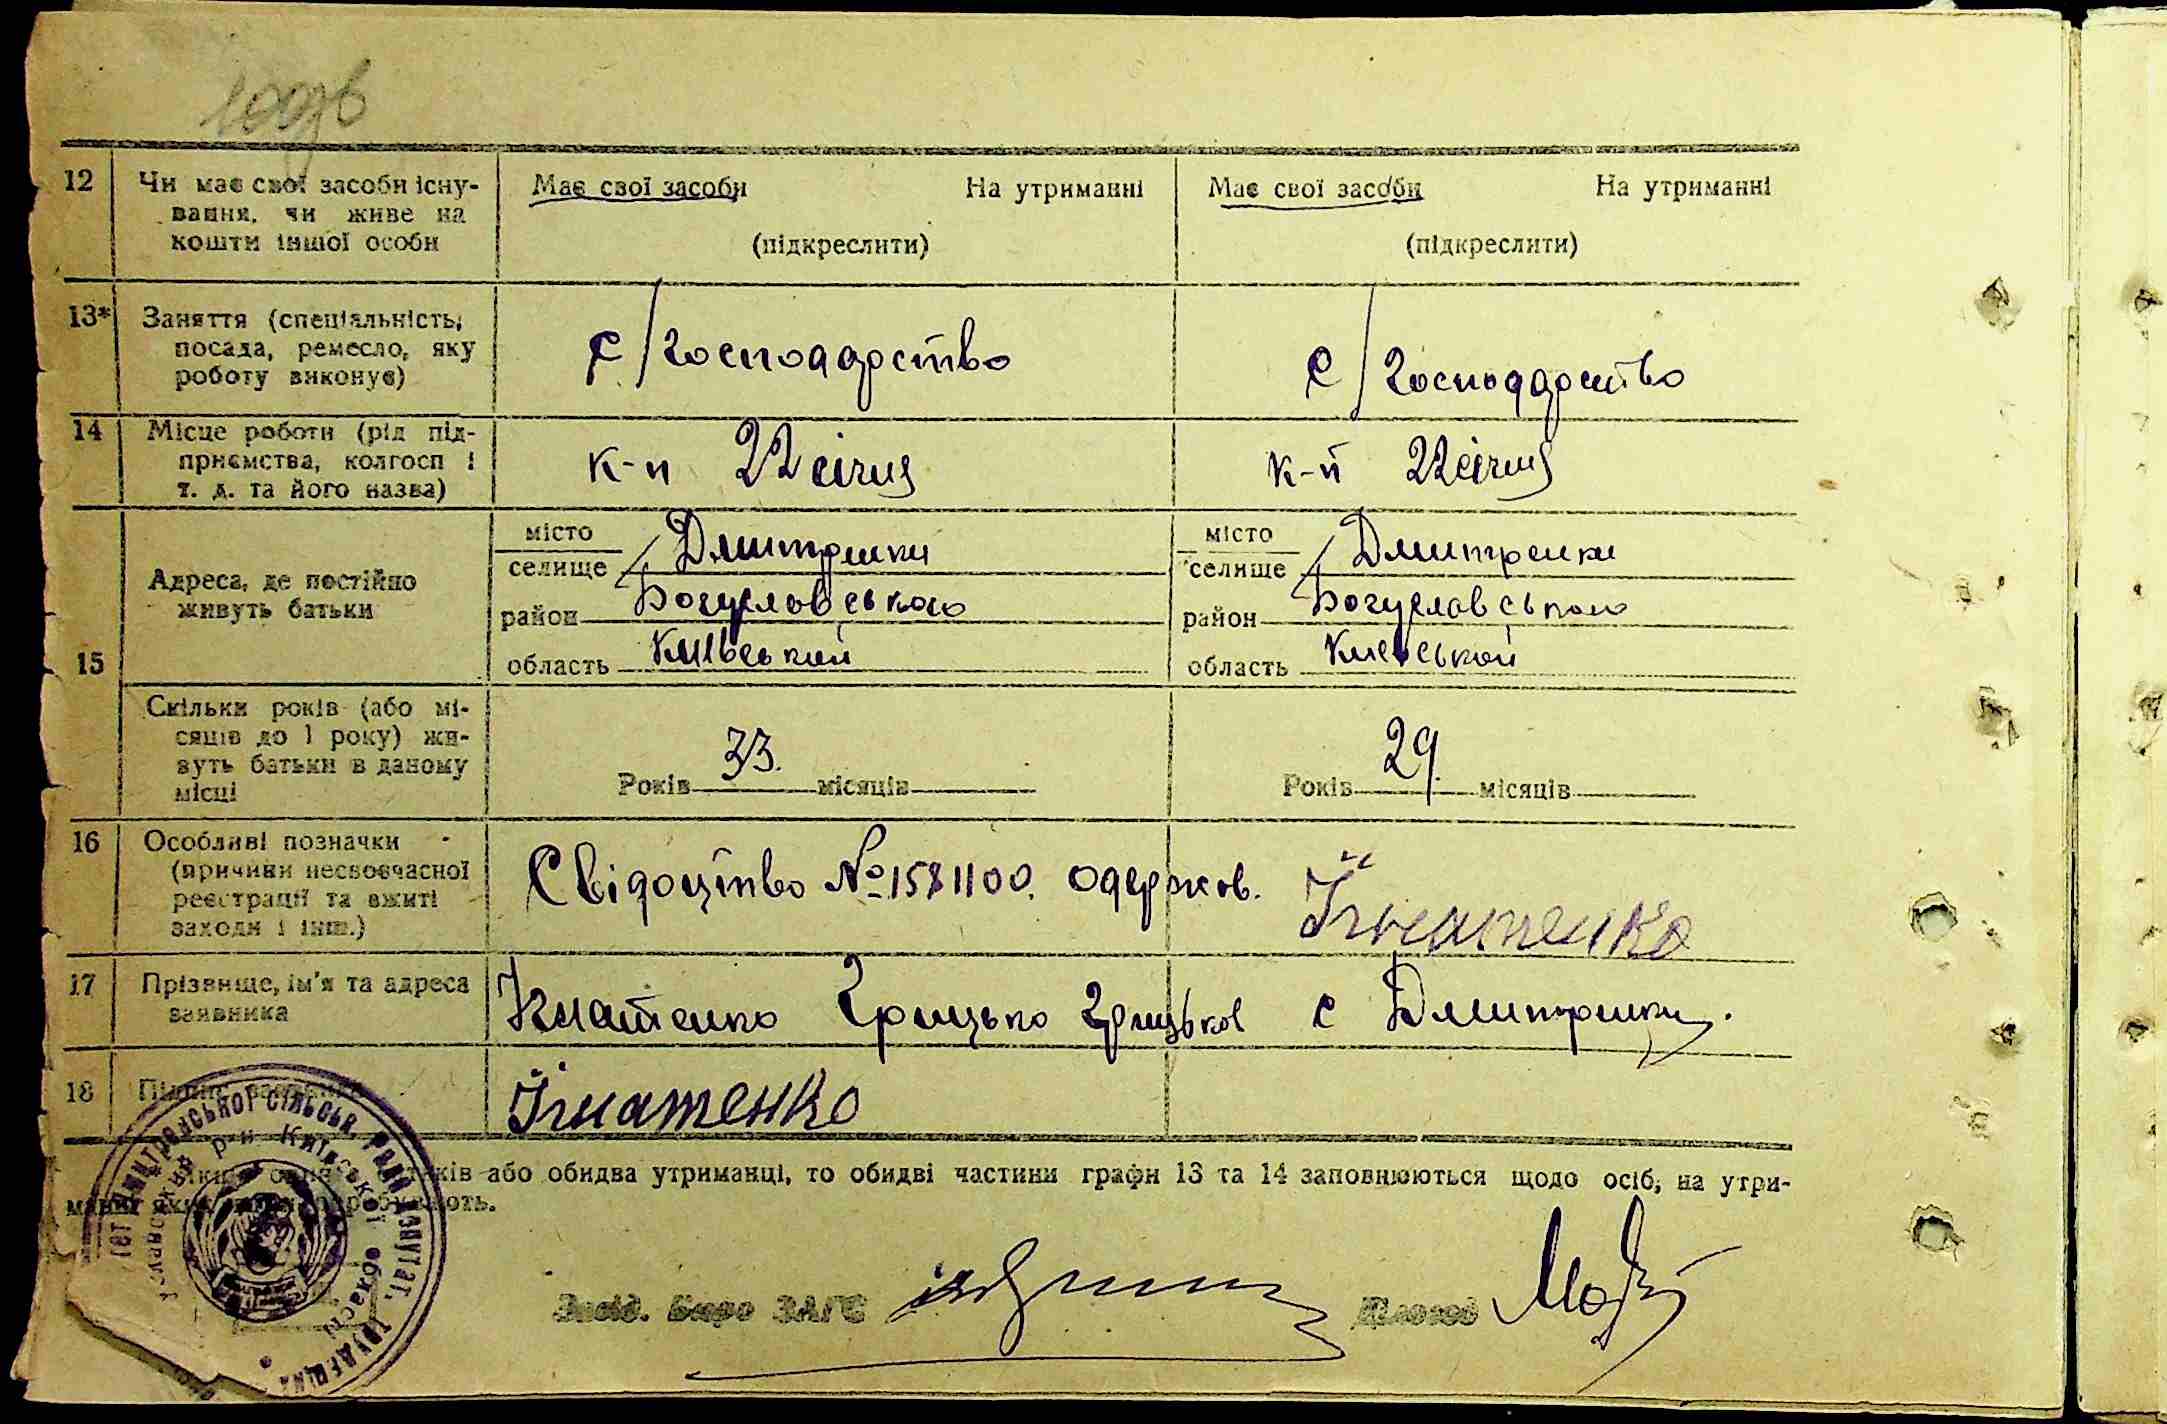 12 Чи має свої засоби існу-
вання, чи живе на
кошти іншої особи
Має свої засоби На утриманні
(підкреслити)
Має свої засоби На утриманні
(підкреслити)
13* Заняття (спеціальність,
посада, ремесло, яку
роботу виконує)
с/господарство
с/господарство
14 Місце роботи (рід під-
приємства, колгосп і
т. д. та його назва)
к-п 22 січня
к-п 22 січня
15 Адреса, де постійно
живуть батьки
місто
селище Дмитренки
район Богуславського
область Київської
місто
селище Дмитренки
район Богуславського
область Київської
Скільки років (або мі-
сяців до 1 року) жи-
вуть батьки в даному
місці
Років 33. місяців
Років 29. місяців
16 Особливі позначки
(причини несвоєчасної
реєстрації та вжиті
заходи і інш.)
Свідоцтво № 1581100. одержав. Ігнатенко
17 Прізвище, ім'я та адреса
заявника
Ігнатенко Грицько Грицьков с Дмитренки.
18 Підпис заявника
Ігнатенко
або обидва утриманці, то обидві частини графи 13 та 14 заповнюються щодо осіб, на утри-
манні яких
Бюро ЗАГС
Діловод